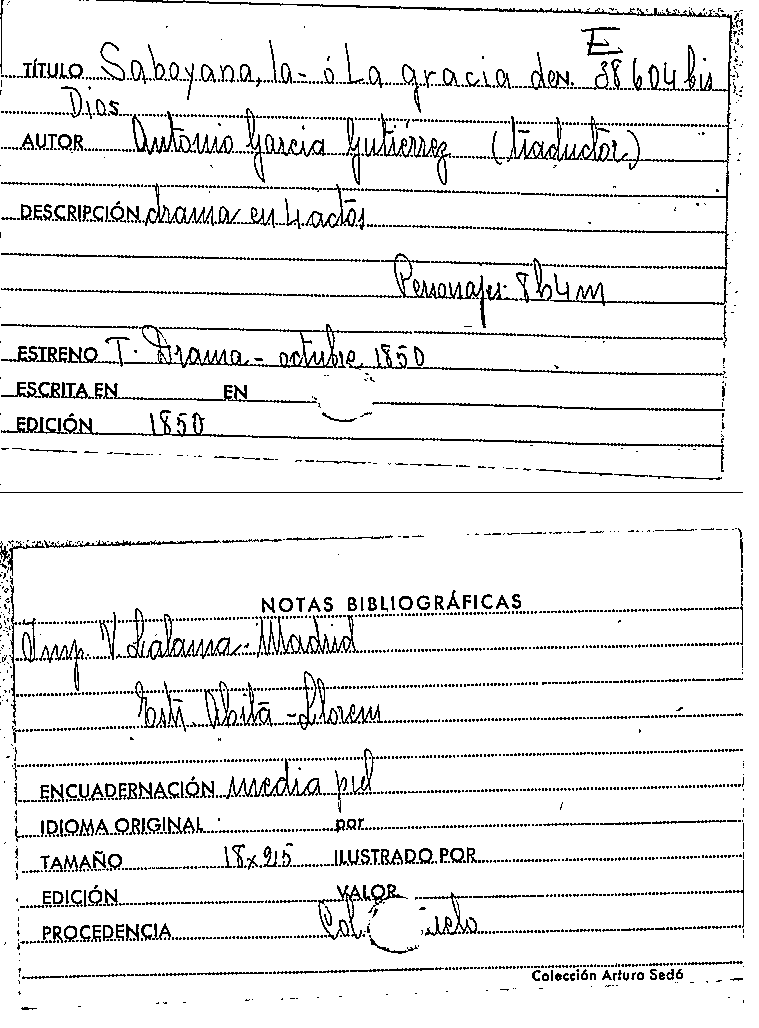 E
TÍTULO Saboyana, la- ó La gracia de N. 38604 bis
Dios
AUTOR Antonio García Gutiérrez (traductor)
DESCRIPCIÓN drama en 4 actos
Personajes: 8h 4m
ESTRENO T. Drama - octubre 1850
ESCRITA EN EN
EDICIÓN 1850
NOTAS BIBLIOGRÁFICAS
Imp. V. Lalama - Madrid
Estr. - Llorens
ENCUADERNACIÓN media piel
IDIOMA ORIGINAL por
TAMAÑO ILUSTRADO POR
EDICIÓN VALOR
PROCEDENCIA Col.
Colección Arturo Sedó